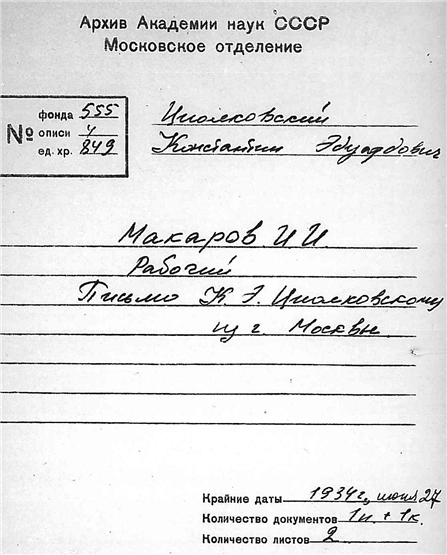 Архив Академии наук СССР
Московское отделение
№
фонда 555
описи 4
ед. хр. 849
Циолковский
Константин Эдуардович
Макаров И.И.
Рабочий
Письмо К.Э. Циолковскому
из г. Москвы.
Крайние даты 1934 г, июня 27
Количество документов 1п. + 1к.
Количество листов 2